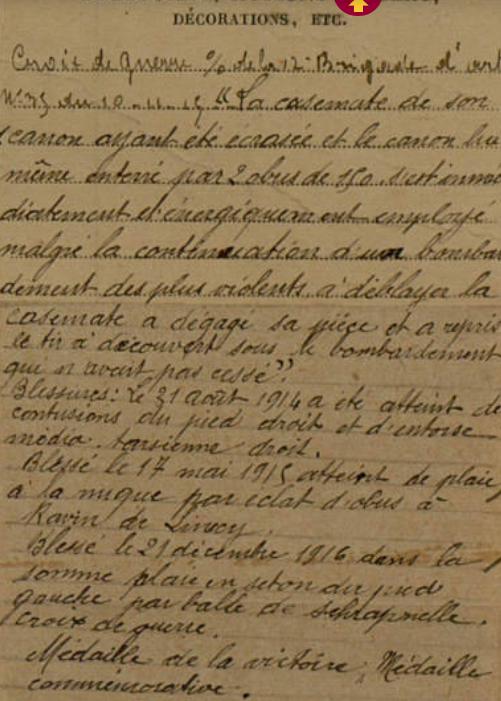 DÉCORATIONS, ETC.
Croix de Guerre % de la 12e Brigade d'art
No 35 du 10.11.15 "La casemate de son
canon ayant été écrasée et le canon lui
même enterré par 2 obus de 150 s'est immé
diatement et énergiquement employé
malgré la continuation d'un bombar
dement des plus violents à déblayer la
casemate a dégagé sa pièce et a repris
le tir à découvert sous le bombardement
qui n'avait pas cessé".
Blessures: Le 31 août 1914 a été atteint de
contusions du pied droit et d'entorse
médio tarsienne droit.
Blessé le 17 mai 1915 atteint de plaie
à la nuque par éclat d'obus à
Ravin de
Blessé le 21 décembre 1916 dans la
somme plaie en seton du pied
gauche par balle de schrapnelle.
Croix de guerre.
Médaille de la victoire, Médaille
commémorative.